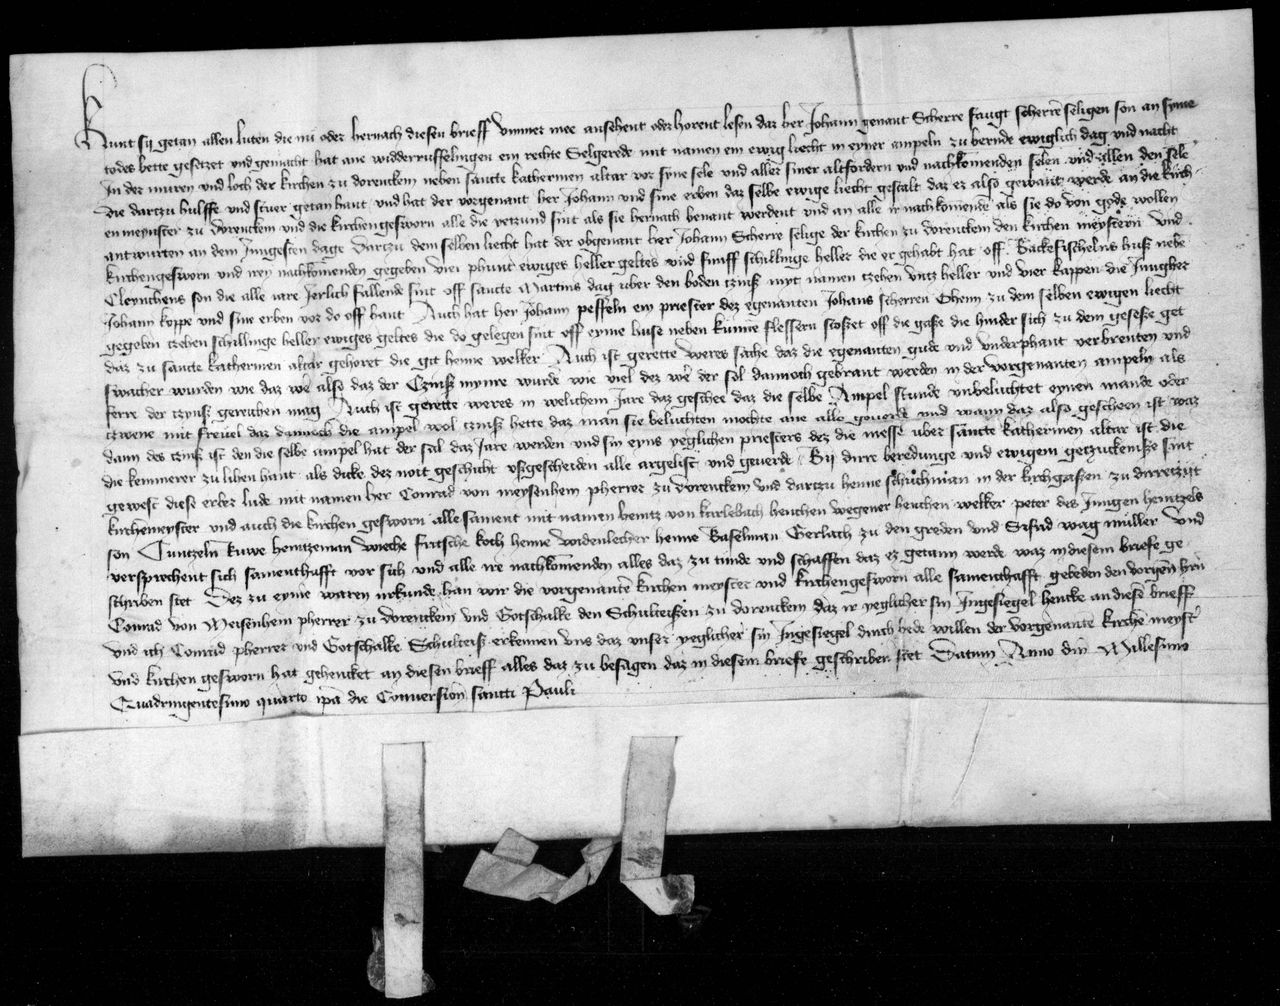 Kunt sij getan allen luten die nu oder hernach diesen brieff ummer me ansehent oder horent lesen daz her Johann genant Scherre faugt scherren seligen son an syme
todes bette gesetzet und gemacht hat ane widderruffelungen ein rechte Selgerede mit namen ein ewig liecht in eyner ampeln zu bernde ewiglich dag und nacht
In der muren und loch der kirchen zu dorenckem neben sancte katherinen altar vor syne sele und aller siner altfordern und nachkomenden selen und allen den sele
die dartzu hulffe und stuer getan hant und hat der vorgenant her Johann und sine erben daz selbe ewige liecht gestalt daz ez also gewant werde an die kirch
enmeynster zu dorenckem und die kirchengesworn alle die yetzund sint als sie hernach benant werdent und an alle ir nachkomende als sie do von gode wollen
antwurten an dem Jungesten dage Dartzu dem selben liecht hat der obgenant her Johann Scherre selige der kirchen zu dorenckem den kirchen meystern und
kirchengesworn und iren nachkomenden gegeben vier phunt ewiges heller geltes und funff schillinge heller die er gehabt hat off Backefischelns huß nebe
Cleynchens son die alle iare Jerlich fallende sint off sancte Martins dag uber den boden czinß mit namen tzehen untz heller und vier kappen die Jungher
Johann koppe und sine erben vor do off hant Auch hat her Johann peffeln ein priester dez egenanten Johans scherren Oheim zu dem selben ewigen liecht
gegeben tzehen schillinge heller ewiges geltes die do gelegen sint off eyme huse neben kunne flessern stoßet off die gaße die hinder sich zu dem geseße get
daz zu sancte katherinen altar gehoret die git henne welker Auch ist gerette weres sache daz die egenanten gude und underphant verbrenten und
swacher wurden wie daz were also daz der Czinß mynre wurde wie viel dez were der sol dannoch gebrant werden in der vorgenanten ampeln als
ferre der tzynß gereichen mag Auch ist gerette weres in welichem Jare daz geschee daz die selbe Ampel stunde unbeluchtet eynen mande oder
tzwene mit frevel daz dannoch die ampel wol tzinß hette daz man sie beluchten mochte ane alle geverde und wann daz also gescheen ist waz
dann des tzinß ist den die selbe ampel hat der sal daz Jare werden und sin eyns yeglichen priesters dez die messe uber sancte katherinen altar ist die
die kemmerer zu lihen hant als dicke dez noit geschicht ußgescheiden alle argelist und geverde Bij dirre beredunge und ewigem getzuckeniße sint
gewest diese erber lude mit namen her Conrad von meysenhem pherrer zu dorenckem und dartzu henne schuchman in der kirchgaßen zu dirretzijt
kirchemeyster und auch die kirchen gesworn alle sament mit namen heintz von kirlebach henchen wegener henchen welker peter des Jungen heintzels
son Cuntzeln kuwe heintzeman wieche fritsche koch henne widenlecher henne Baselman Gerlach zu den greden und Syfrid wag muller und
versprechent sich samenthafft vor sich und alle ire nachkomenden alles daz zu tunde und schaffen daz ez getann werde waz in diesem briefe ge
schriben stet Dez zu eyme waren urkunde han wir die vorgenante kirchen meyster und kirchengesworn alle samenthafft gebeden den vorgen hern
Conrad von Meisenhem pherrer zu dorenckem und Gotschalke den Schulteißen zu dorenckem daz ir yeglicher sin Ingesiegel hencke an diesen brieff
und ich Conrad pherrer und Gotschalke Schulteiß erkennen uns daz unser yeglicher sin Ingesiegel durch bede willen der vorgenante kirche meyster
und kirchen gesworn hat gehencket an diesen brieff alles daz zu besagen daz in diesem briefe geschriben stet Datum Anno dni Millesimo
Quadringentesimo quarto ipa die Conversion sancti Pauli